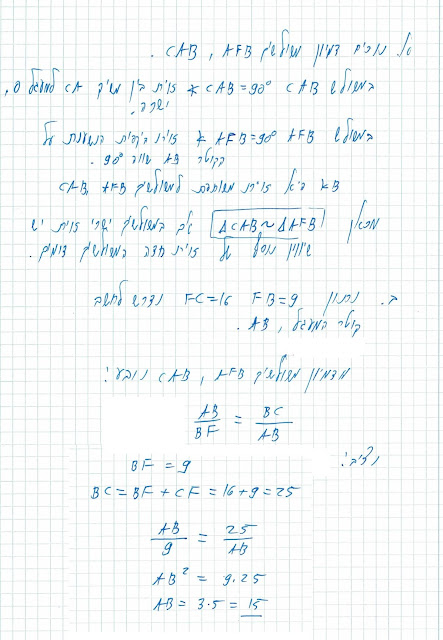 א) נוכיח דמיון משולשים CAB, AFB.
במשולש CAB ∢CAB=90° זוית בין משיק CA למעגל O,
ישרה.
במשולש AFB ∢AFB=90° זוית היקפית הנשענת על
הקוטר AB שווה 90°.
∢B היא זוית משותפת למשולשים CAB, AFB
מכאן ΔCAB~ΔAFB אם במשולשים ישרי זוית יש
שוויון נוסף של זוית חדה המשולשים דומים.
ב. נתון FC=16 FB=9 נדרש לחשב
קוטר המעגל, AB.
מדמיון משולשים CAB, AFB נובע:
AB/BF = BC/AB
נציב:
BF=9
BC=BF+CF=16+9=25
AB/9 = 25/AB
AB²=9.25
AB=3.5=15